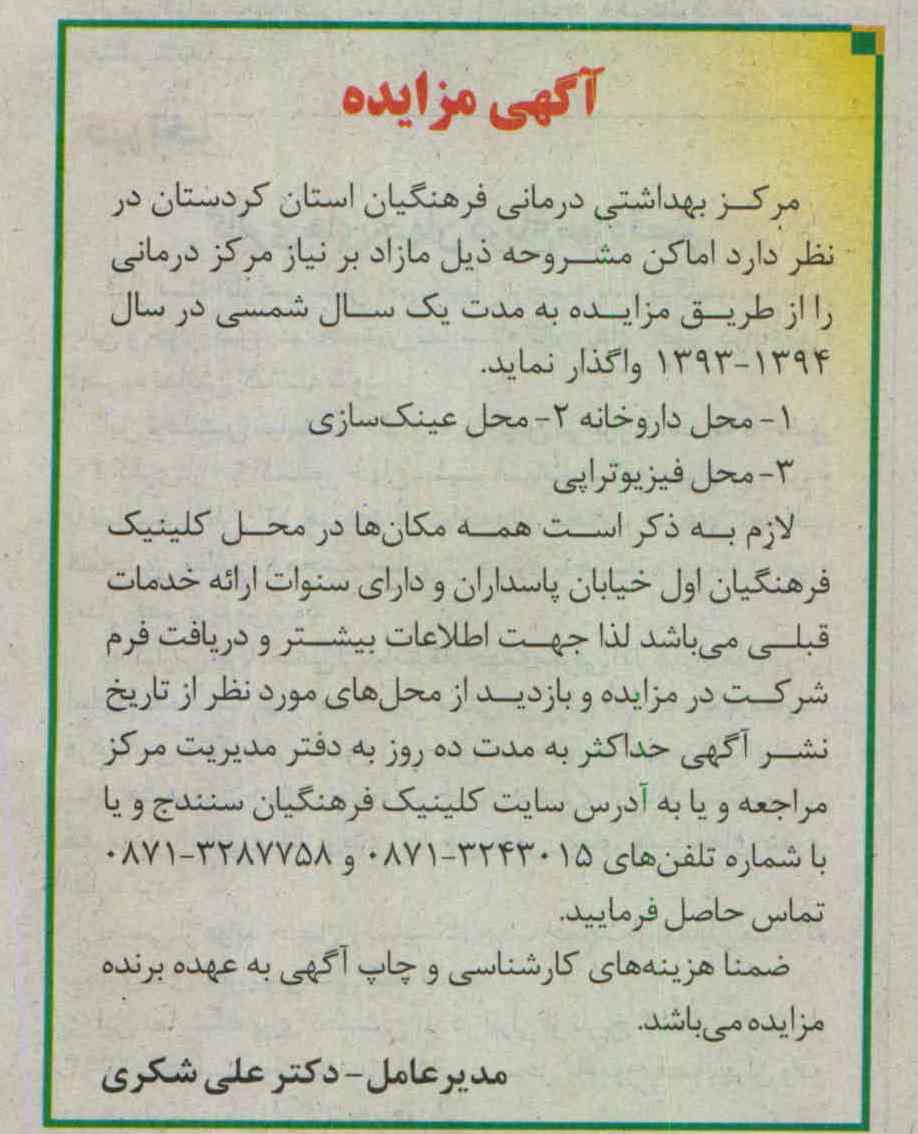 آگهی مزایده
مرکز بهداشتی درمانی فرهنگیان استان کردستان در
نظر دارد اماکن مشروحه ذیل مازاد بر نیاز مرکز درمانی
را از طریق مزایده به مدت یک سال شمسی در سال
۱۳۹۳-۱۳۹۴ واگذار نماید.
۱- محل داروخانه ۲- محل عینک‌سازی
۳- محل فیزیوتراپی
لازم به ذکر است همه مکان‌ها در محل کلینیک
فرهنگیان اول خیابان پاسداران و دارای سنوات ارائه خدمات
قبلی می‌باشد لذا جهت اطلاعات بیشتر و دریافت فرم
شرکت در مزایده و بازدید از محل‌های مورد نظر از تاریخ
نشر آگهی حداکثر به مدت ده روز به دفتر مدیریت مرکز
مراجعه و یا به آدرس سایت کلینیک فرهنگیان سنندج و یا
با شماره تلفن‌های ۳۲۴۳۰۱۵-۰۸۷۱ و ۳۲۸۷۷۵۸-۰۸۷۱
تماس حاصل فرمایید.
ضمنا هزینه‌های کارشناسی و چاپ آگهی به عهده برنده
مزایده می‌باشد.
مدیرعامل- دکتر علی شکری